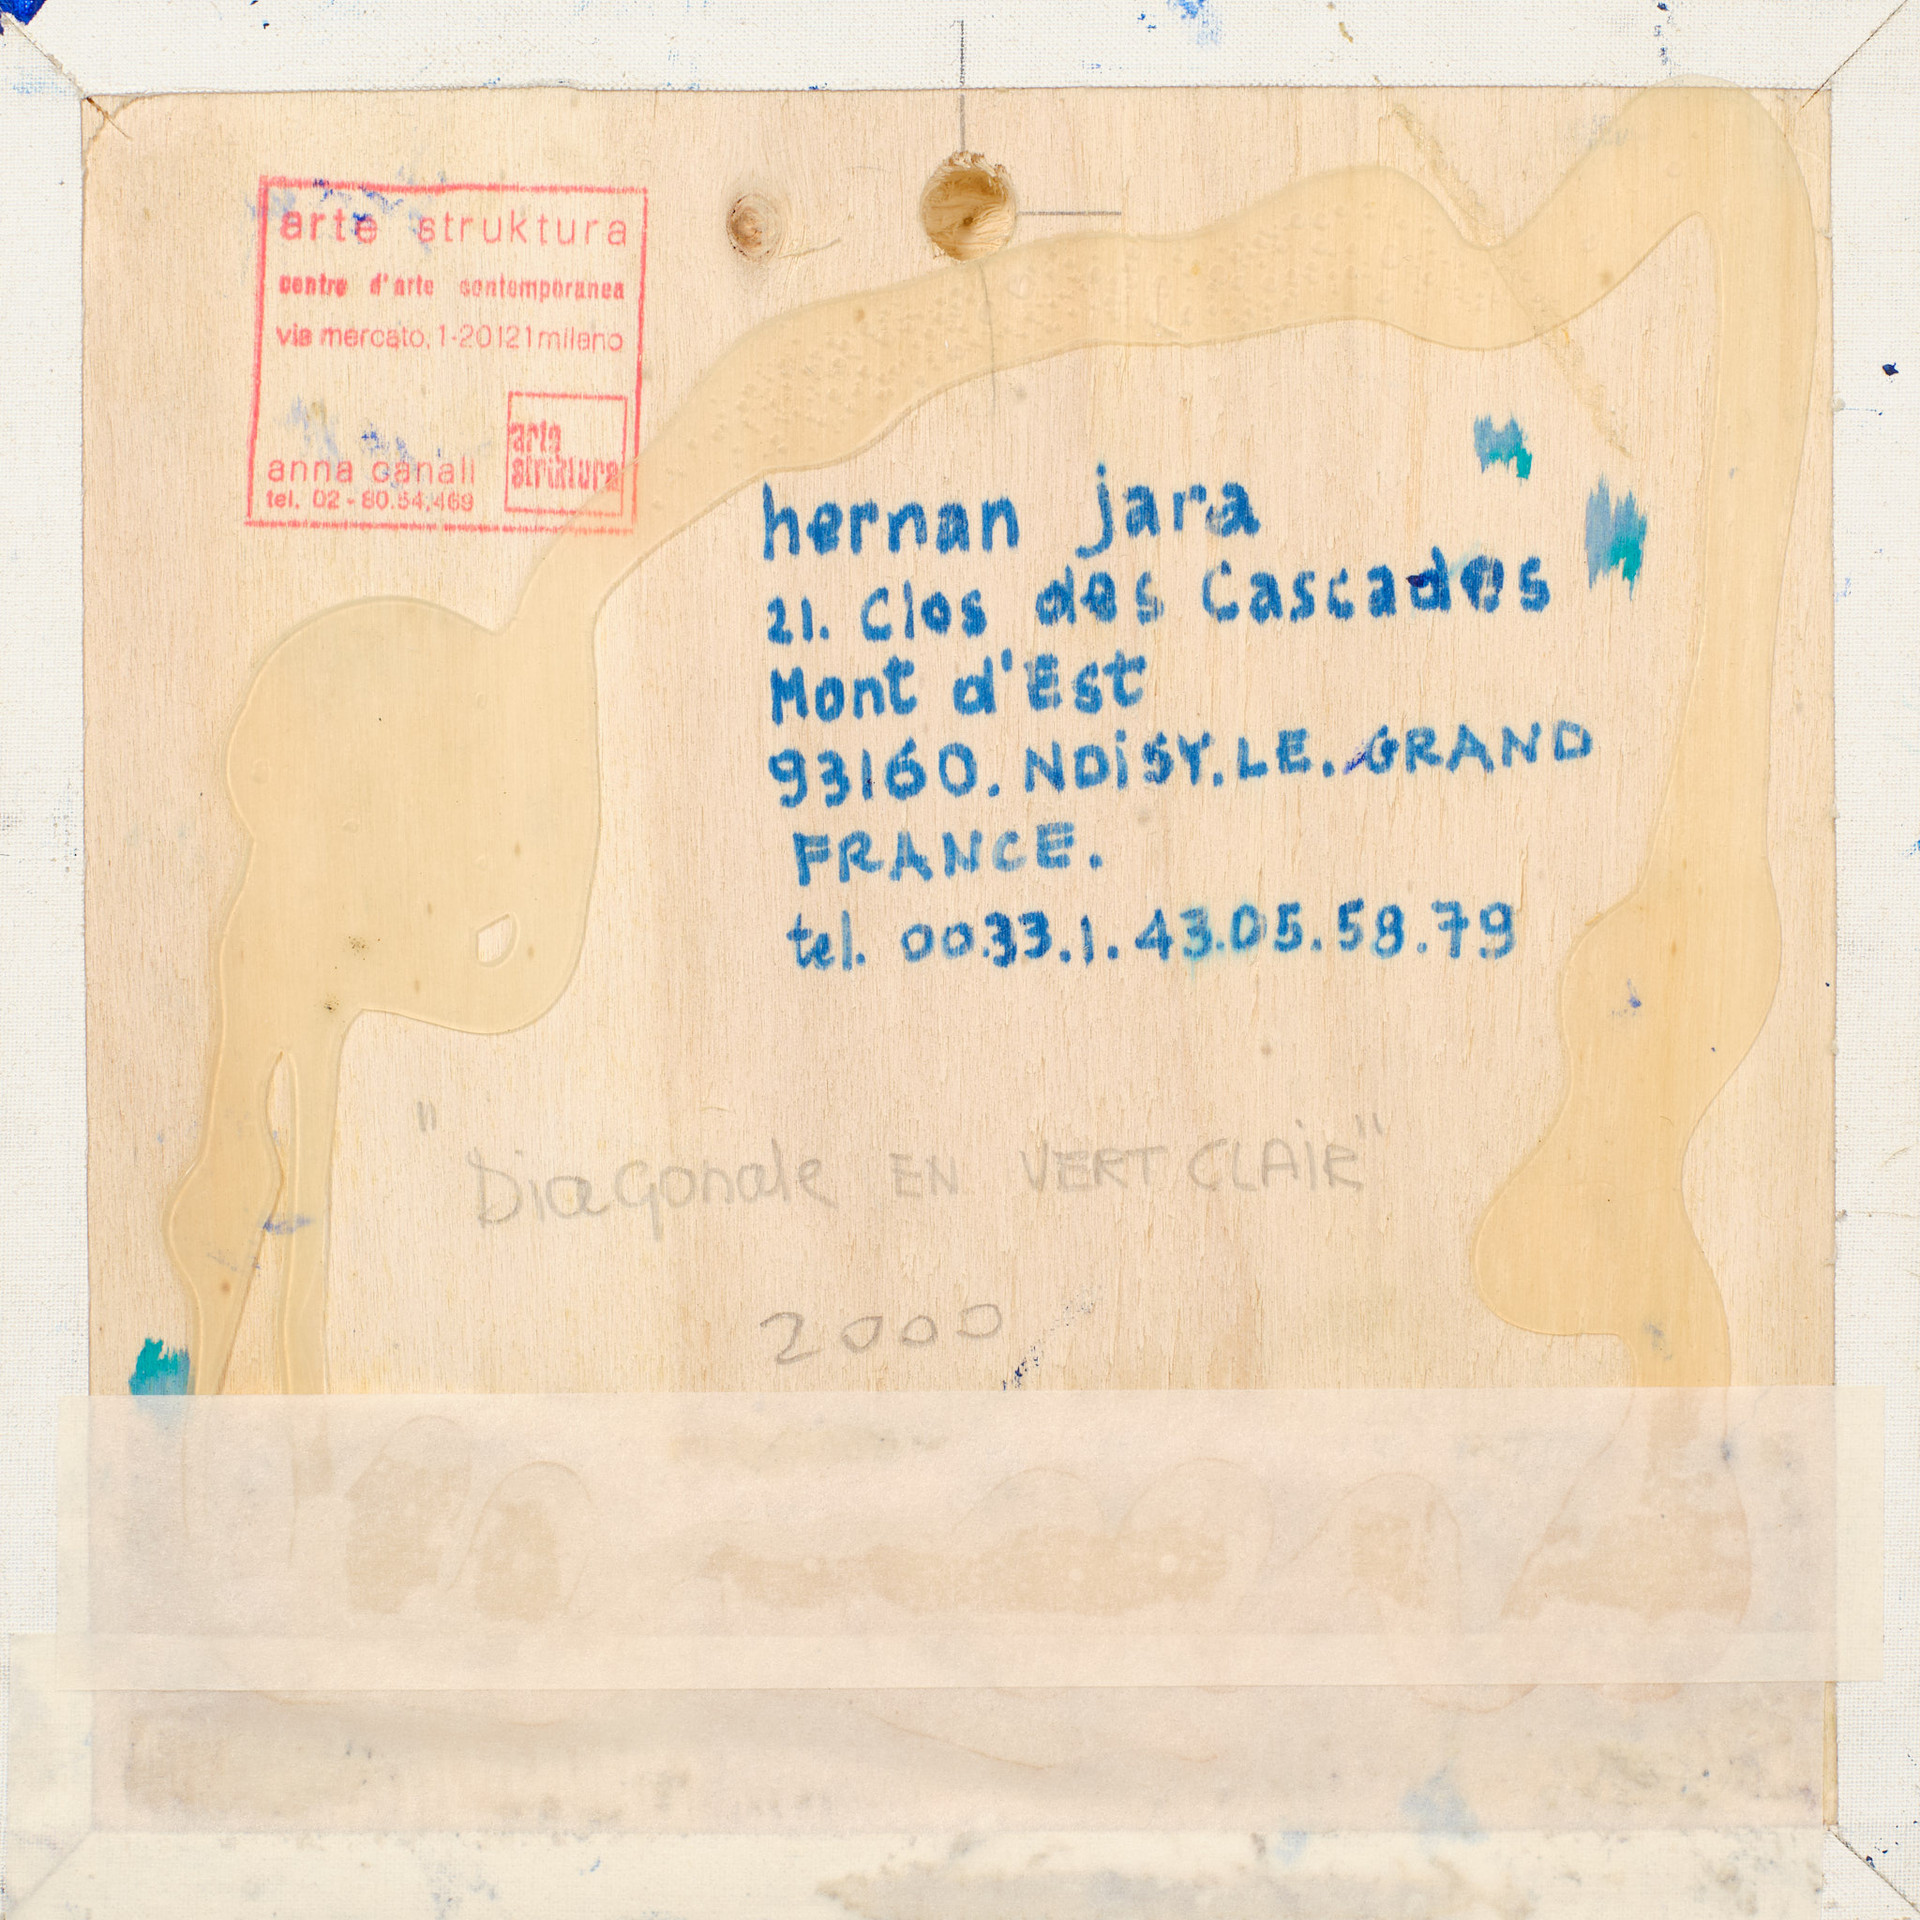 arte struktura
centro d'arte contemporanea
via mercato, 1-20121 milano
anna canali
tel. 02-80.54.469
arte
struktura
hernan jara
21. Clos des Cascades
Mont d'Est
93160. NOiSY. LE. GRAND
FRANCE.
tel. 0033.1.43.05.58.79
"Diagonale EN VERT CLAIR"
2000